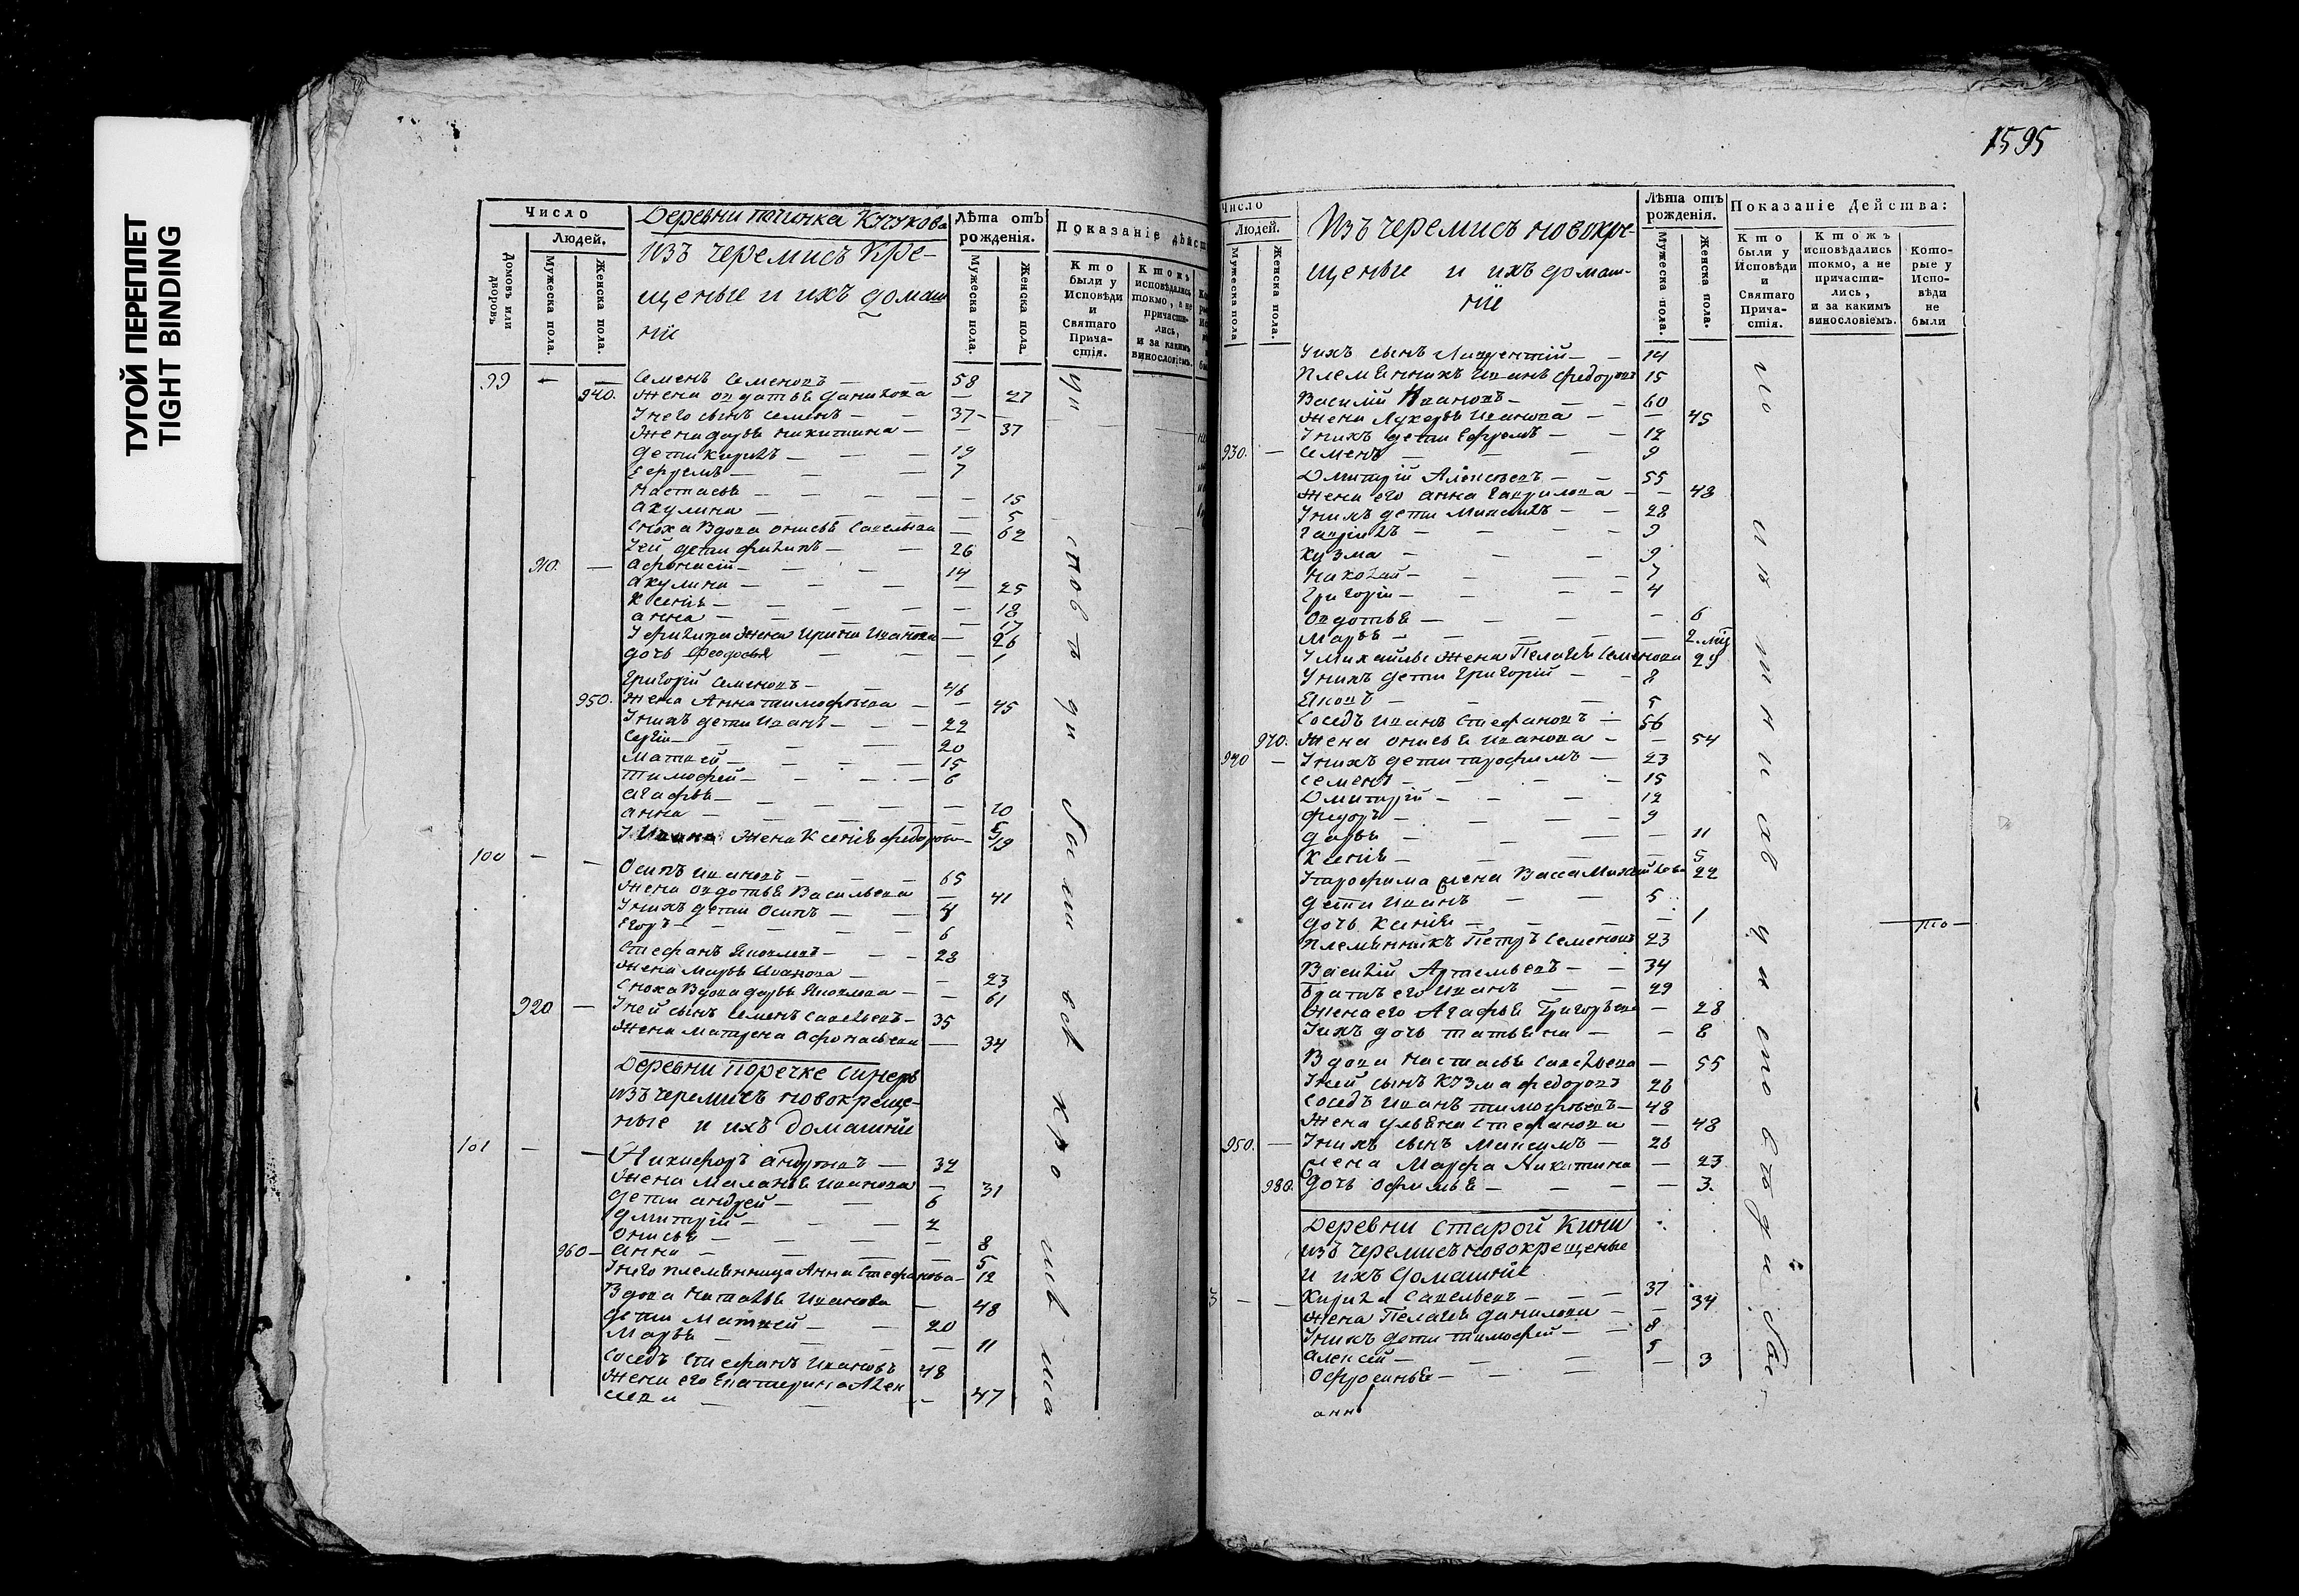 ТУГОЙ ПЕРЕПЛЕТ
TIGHT BINDING
Число
Людей.
Домовъ или дворовъ
Мужеска пола.
Женска пола.
Деревни починка Кчукова
изъ черемисъ кре-
щеные и ихъ домаш
ніе
Лѣта отъ рожденія.
Мужеска пола.
Женска пола.
Показаніе дѣйст
Кто были у Исповѣди и Святаго Прича-стія.
Ктожъ исповѣдались токмо, а не причасти-лись, и за какимъ винословіемъ.
99 — — Семенъ Семеновъ — — 58
940. Жена овдотья данилова — 27
Унего сынъ Семенъ — — 37 —
Жена дарья никитина — — 37
дети кирилъ — — — 19
Ефремъ — — — 7
настасья — — — — 15
акулина — — — — 5
сноха вдова онисья Савельева — 62
Уей дети филипъ — — 26
910. — афонасій — — — 14
акулина — — — — 25
ксенія — — — — 18
анна — — — — 17
У филипа жена ирина иванова — 26
дочь феодосья — — — 1
григорій Семеновъ — — 46
950. Жена Анна тимофѣева — — 45
Унихъ дети иванъ — — — 22
Сергій — — — — 20
Матвей — — — — 15
тимофей — — — — 6
агафья — — — — 10
анна — — — — 5
У Ивана жена Ксенія федорова — 19
100 — — Осипъ ивановъ — — — 65
Жена овдотья Васильева — 41
Унихъ дети Осипъ — —
Егоръ — — — — 6
Стефанъ Яковлевъ — — — 28
Жена Марья Иванова — — 23
Сноха Вдова дарья Яковлева — — 61
920 — Уней сынъ Семенъ Савельевъ — 35
Жена Матрена Афонасьева — 34
Деревни Поречке Синеръ
изъ черемисъ новокреще-
ные и ихъ домашніи
101 — — Никифоръ андреевъ — 32
Жена Маланья Иванова — 31
дети андрей — — 6
дмитрій — — — 2
Онисья — — — — 8
960 — анна — — — — 5
Унего племянница Анна Стефанова — 12
Вдова наталья Иванова — 48
дети Матвей — — 20
Марья — — — — 11
соседъ Стефанъ Ивановъ 48
Жена его Екатерина Алек
сеева — — — 47
1595
Число
Людей.
Мужеска пола
Женска пола.
Изъ черемисъ новокре-
щеные и ихъ домаш-
ніе
Лѣта отъ рожденія.
Мужеска пола.
Женска пола.
Показаніе Действа:
Кто были у Исповѣди и Святаго Прича-стія.
Ктожъ исповѣдались токмо, а не причасти-лись, и за какимъ винословіемъ.
Кото-рые у Испо-вѣди не были
Уихъ сынъ Лаврентій — — 14
Племянникъ Иванъ федоровъ 15
Василій Ивановъ — — — 60
Жена Лукерья Иванова — — 45
Унихъ дети Ефремъ — — 12
930. — Семенъ — — — 9
Дмитрій Алексеевъ — — 55
Жена его анна Гаврилова — — 48
Унихъ дети Михаилъ — — 28
Гаврілъ — — — 9
Кузма — — — 9
Николай — — — 7
григорій — — — 4
Овдотья — — — — 6
Марья — — — — 2. мц
У Михайлы жена Пелагея Семенова 29
Унихъ дети григорій — — 8
Яковъ — — — 5
Соседъ Иванъ Стефановъ — 56
970. Жена онисья иванова — — 54
940 — Унихъ дети трофимъ — 23
Семенъ — — — 15
Дмитрій — — — 12
федоръ — — — 9
дарья — — — 11
Ксенія — — — 5
Утрофима жена Васса Михайлова 22
дети иванъ — — 5
дочь Ксенія — — — 1
племянникъ Петръ Семеновъ 23
Василій Артемьевъ — — 34
братъ его иванъ — — 29
Жена его Агафья Григорьева — 28
Уихъ дочь татьяна — — 8
Вдова настасья Савельева — 55
Уней сынъ Кузма федоровъ 26
соседъ иванъ тимофеевъ — 48
Жена ульяна Стефанова — 48
950. — Унихъ сынъ Максимъ — 26
жена Марфа Никитина — 23
980. дочь офимья — — — 3.
то
Деревни Старой Кини
изъ черемисъ новокрещеные
и ихъ домашніе
Кирила Савельевъ — — 37
Жена Пелагея данилова — — 34
Унихъ дети тимофей — — 8
Алексей — — — 5
Офросинья — — — 3
анна